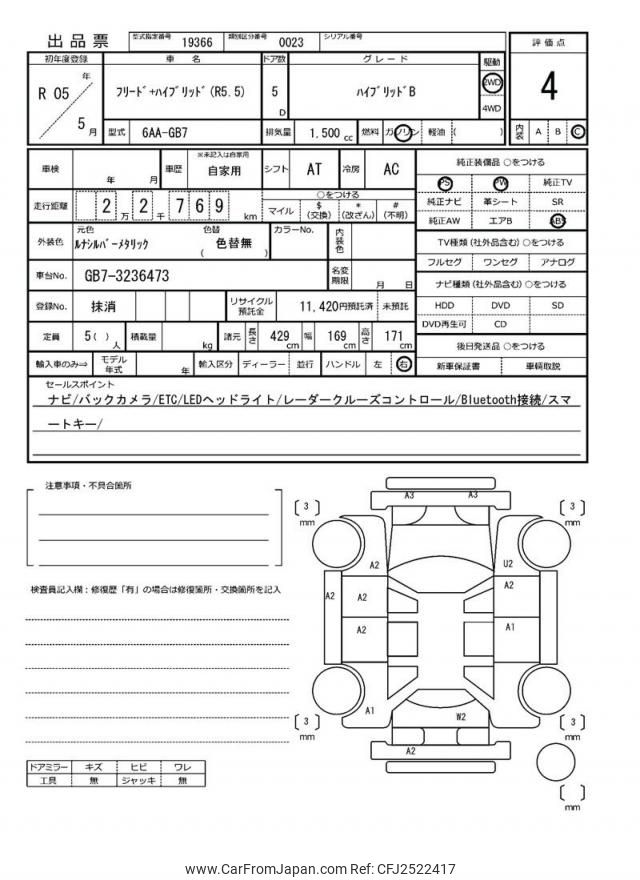 出品票 型式指定番号 19366 類別区分番号 0023 シリアル番号
初年度登録 車名 ドア数 グレード 駆動 評価点
R 05 年 5 月 フリード+ハイブリッド(R5.5) 5 D ハイブリッドB 2WD 4WD 4
型式 6AA-GB7 排気量 1.500 cc 燃料 ガソリン 軽油 ( ) 内装 A B C
車検 年 月 車歴 ※未記入は自家用 自家用 シフト AT 冷房 AC 純正装備品 ○をつける
PS PW 純正TV
走行距離 2 万 2 千 7 6 9 km ○をつける マイル $ (交換) * (改ざん) # (不明) 純正ナビ 革シート SR
純正AW エアB ABS
外装色 元色 ルナシルバーメタリック 色替 ( 色替無 ) カラーNo. 内装色 TV種類 (社外品含む) ○をつける
フルセグ ワンセグ アナログ
車台No. GB7-3236473 名変期限 月 日 ナビ種類 (社外品含む) ○をつける
登録No. 抹消 リサイクル預託金 11,420円預託済 未預託 HDD DVD SD
DVD再生可 CD
定員 5 ( ) 人 積載量 kg 諸元 長さ 429 cm 幅 169 cm 高さ 171 cm 後日発送品 ○をつける
輸入車のみ⇒ モデル年式 年 輸入区分 ディーラー 並行 ハンドル 左 右 新車保証書 車輌取説
セールスポイント
ナビ/バックカメラ/ETC/LEDヘッドライト/レーダークルーズコントロール/Bluetooth接続/スマ
ートキー/
注意事項・不具合箇所
検査員記入欄：修復歴「有」の場合は修復箇所・交換箇所を記入
A3 A3
3 mm 3 mm
A2 U2
A2 A2 A2
A2 A1
A1 W2
3 mm 3 mm
A2
mm
ドアミラー キズ ヒビ ワレ
工具 無 ジャッキ 無
www.CarFromJapan.com Ref: CFJ2522417